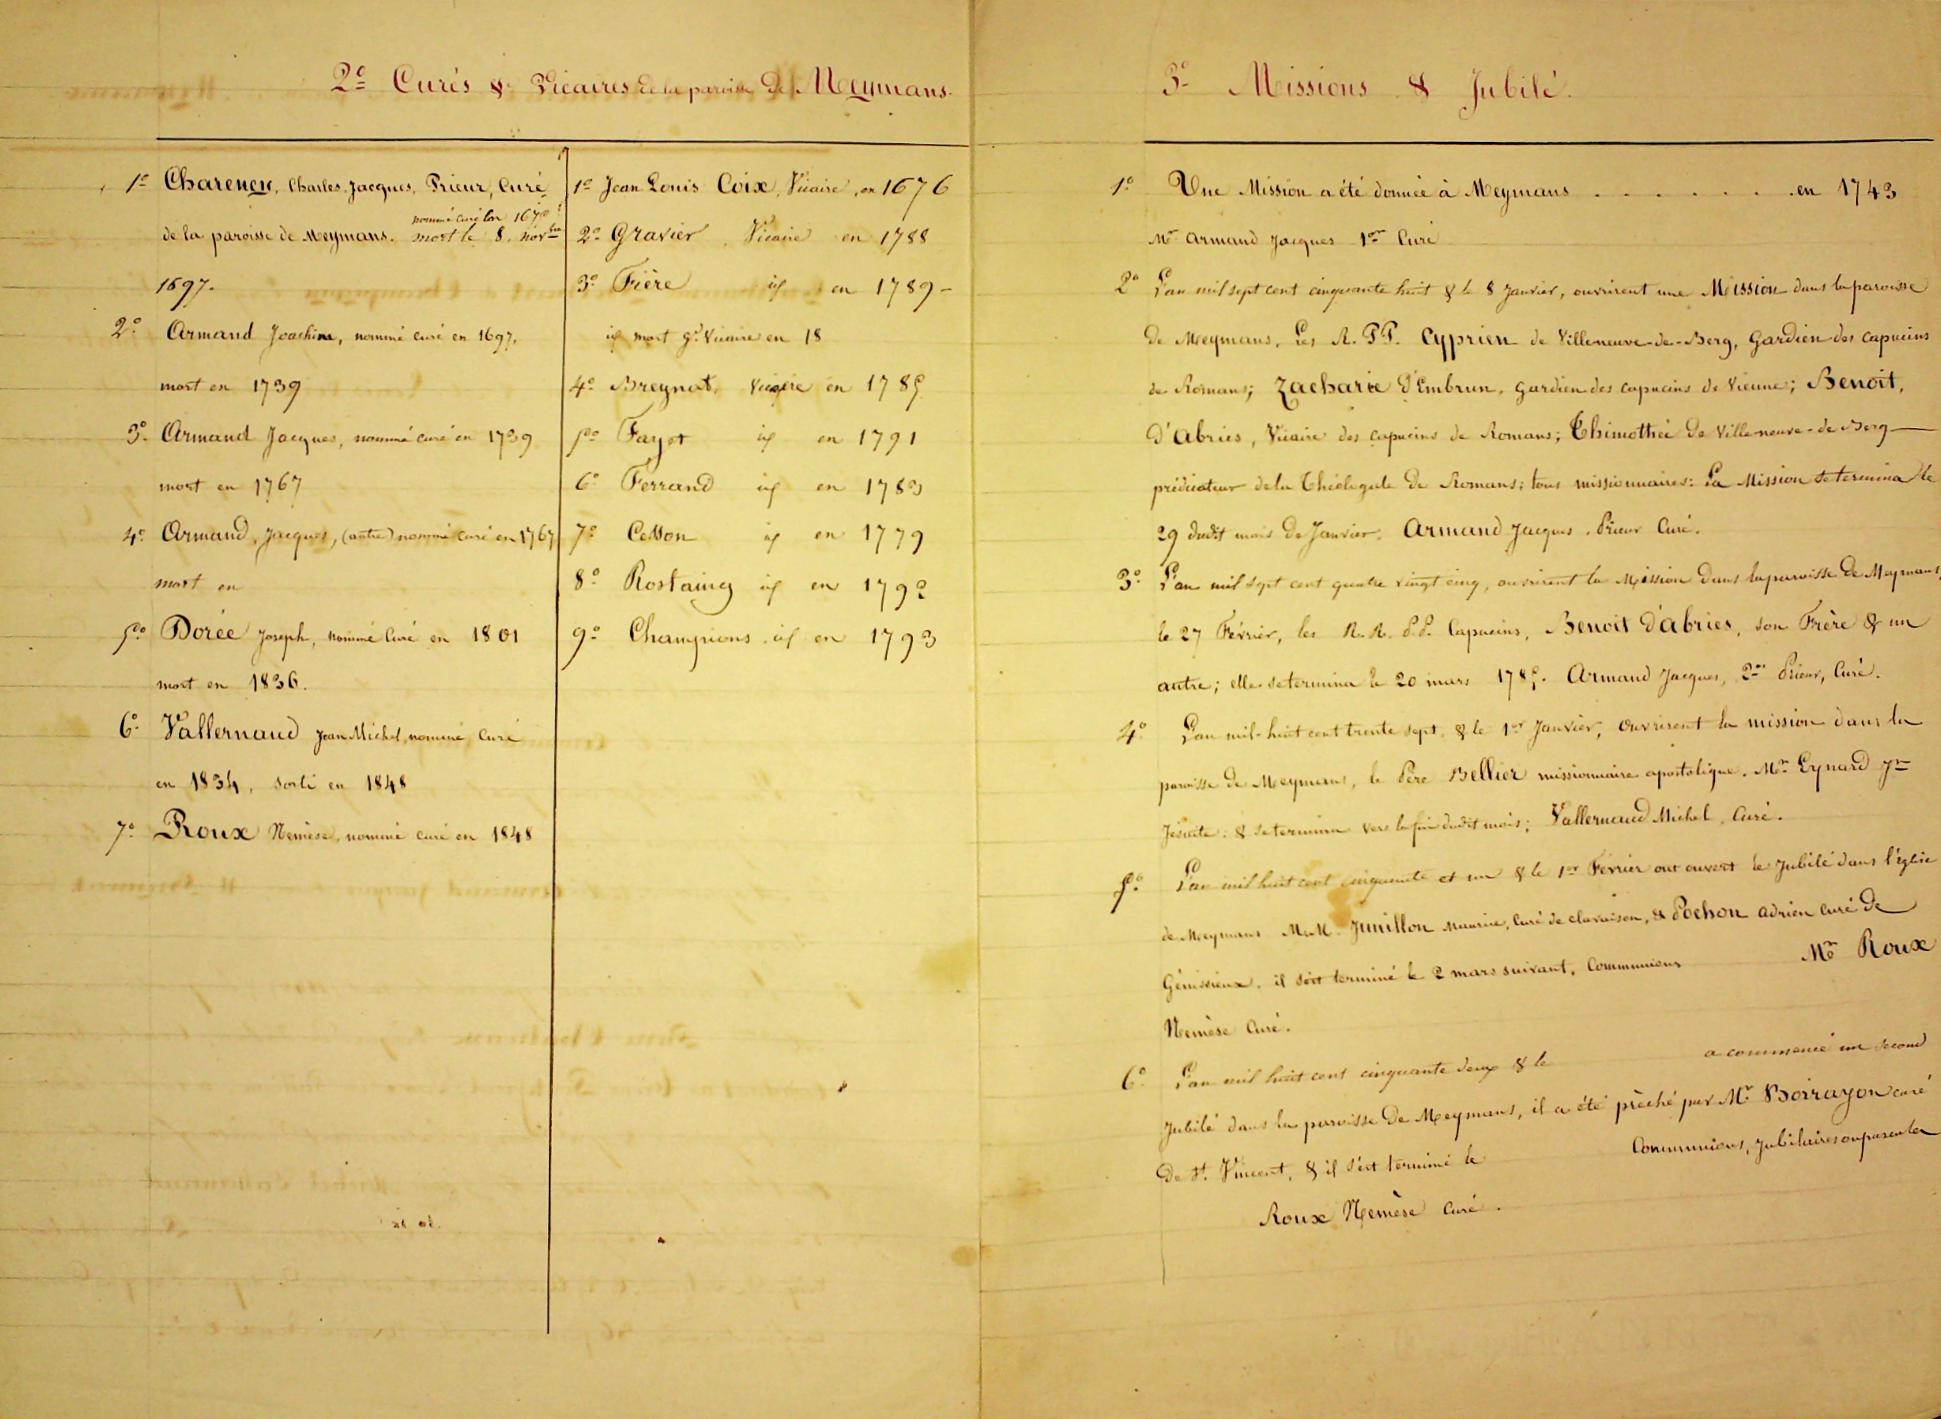 2° Curés & Vicaires de la paroisse de Meymans.
1° Charency, Charles Jacques, Prieur, Curé
nommé curé l'an 167
de la paroisse de Meymans. mort le 8. nov.bre
1697.
2° Armand Joachim, nommé curé en 1697,
mort en 1739
3° Armand Jacques, nommé curé en 1739
mort en 1767
4° Armand, Jacques, (autre) nommé curé en 1767
mort en
5° Dorée Joseph, nommé Curé en 1801
mort en 1836.
6° Vallernaud Jean Michel, nommé Curé
en 1834, sorti en 1848
7° Roux Nemèse, nommé curé en 1848
1° Jean Louis Coix, Vicaire, en 1676
2° Gravier, Vicaire en 1788
3° Fière id en 1789 -
id mort gd Vicaire en 18
4° Breynat, Vicaire en 1785
5° Fayot id en 1791
6° Ferrand id en 1783
7° Cesson id en 1779
8° Rostaing id en 1792
9° Champions id en 1793
3° Missions & Jubilé.
1° Une Mission a été donnée à Meymans . . . . . . . en 1743
Mr Armand Jacques 1er Curé
2° L'an mil sept cent cinquante huit & le 8 Janvier, ouvrirent une Mission dans la paroisse
de Meymans, Les R. PP. Cyprien de Villeneuve-de-Berg, Gardien des capucins
de Romans; Zacharie d'Embrun, Gardien des capucins de Vienne; Benoit,
d'Abries, Vicaire des capucins de Romans; Thimothée de Villeneuve-de Berg
prédicateur de la Théologale de Romans; tous missionnaires: La Mission se termina le
29 dudit mois de Janvier. Armand Jacques, Prieur Curé.
3° L'an mil sept cent quatre vingt cinq, ouvrirent la Mission dans la paroisse de Meymans,
le 27 Février, les R.R. P.P. Capucins, Benoit d'abries, son Frère & un
autre; elle se termina le 20 mars 1785. Armand Jacques, 2me Prieur, Curé.
4° L'an mil-huit cent trente sept, & le 1er Janvier, ouvrirent la mission dans la
paroisse de Meymans, le Père Bellier missionnaire apostolique. Mr Eynard
Jésuite: & se termina vers la fin dudit mois; Vallernaud Michel, Curé.
5° L'an mil huit cent cinquante et un & le 1er Février ont ouvert le Jubilé dans l'église
de Meymans M.M. Junillon Maurice, Curé de claveison, & Pochon adrien curé de
Génissieux. il s'est terminé le 2 mars suivant. Communions Mr Roux
Nemèse Curé.
6° L'an mil huit cent cinquante deux & le a commencé un second
Jubilé dans la paroisse de Meymans, il a été prêché par Mr Boirayon curé
de St. Vincent, & il s'est terminé le Communions, Jubilaires
Roux Nemèse Curé.